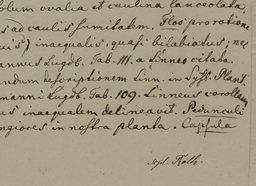 olum ovalia et caulina lanceolata,
s ad caulis sumitatem. Flos pro ratione
uis) inaequalis, quasi bilabiatus; nec
annus Lugdb. Tab. 111. a Linneo citata.
ndum descriptionem Linn. in Syst. Plant.
manni Lugdb. Tab. 109. Linneus corollam
us inaequalem delineavit. Pedunculi
ngiores in nostra planta. Capsula